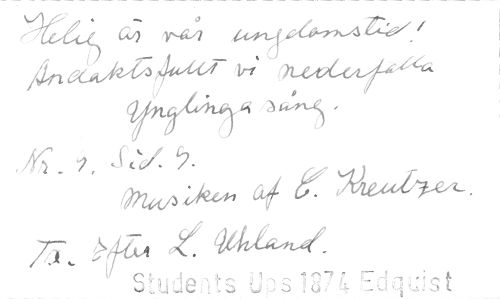 Helig är vår ungdomstid!
Andaktsfullt vi nederfalla
Ynglingasång.
Nr. 9. Sid. 9.
Musiken af C. Kreutzer.
Tx. Efter L. Uhland.
Students Ups 1874 Edquist